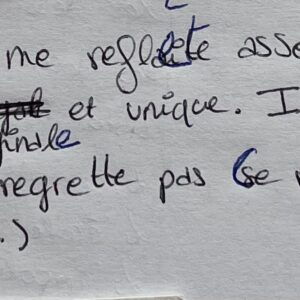 me reflète asse
et unique. I
finale
regrette pas (se
.)